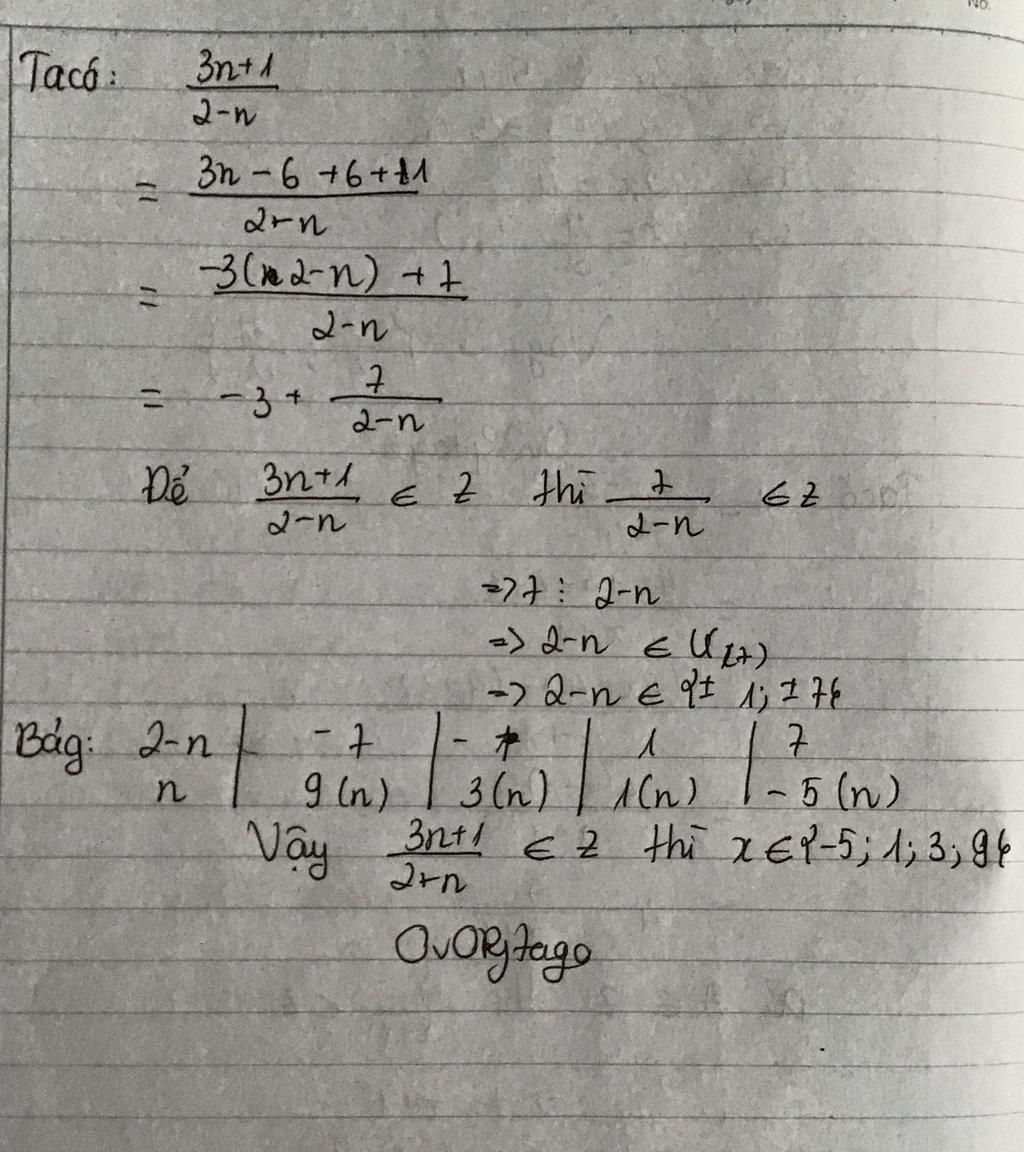 No.
Ta có: 3n+1 / 2-n
= 3n - 6 + 6 + 1 / 2-n
= -3(2-n) + 7 / 2-n
= -3 + 7 / 2-n
Để 3n+1 / 2-n ∈ Z thì 7 / 2-n ∈ Z
=> 7 ⋮ 2-n
=> 2-n ∈ Ư(7)
=> 2-n ∈ {± 1; ± 7}
Bảg: 2-n | -7 | - 1 | 1 | 7
n | 9 (n) | 3 (n) | 1 (n) | -5 (n)
Vậy 3n+1 / 2-n ∈ Z thì x ∈ {-5; 1; 3; 9}